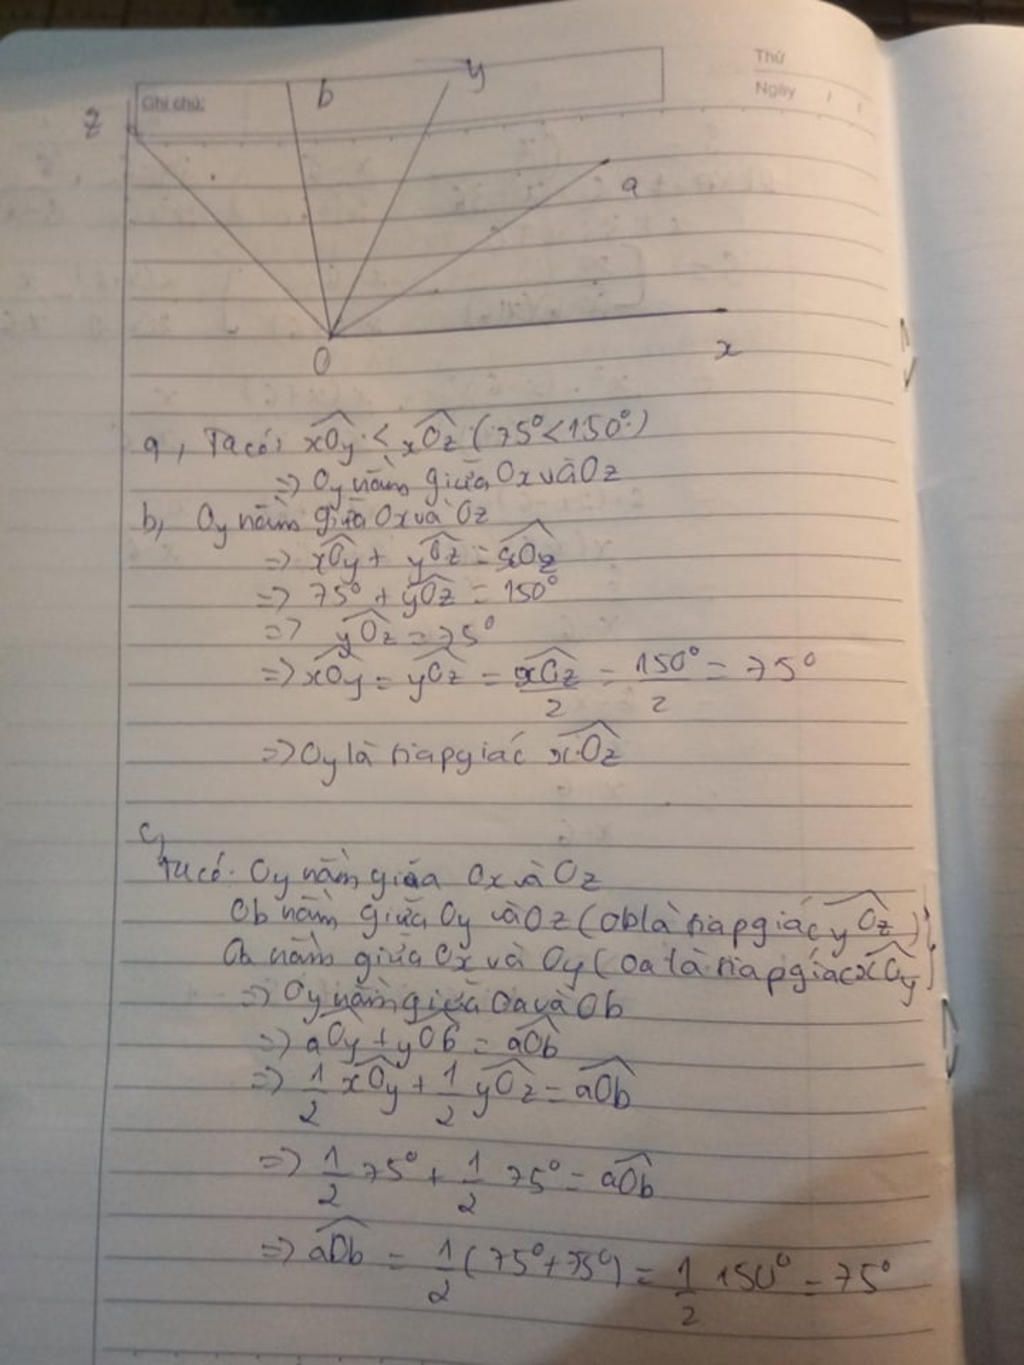 Thứ
Ghi chú:
Ngày / /
z b y
a
O x
a, Ta có: xOy < xOz (75° < 150°)
=> Oy nằm giữa Ox và Oz
b, Oy nằm giữa Ox và Oz
=> xOy + yOz = xOz
=> 75° + yOz = 150°
=> yOz = 75°
=> xOy = yOz = xOz/2 = 150°/2 = 75°
=> Oy là tia p giác xOz
c,
Ta có: Oy nằm giữa Ox và Oz
Ob nằm giữa Oy và Oz (Ob là tia p giác yOz)
Oa nằm giữa Ox và Oy (Oa là tia p giác xOy)
=> Oy nằm giữa Oa và Ob
=> aOy + yOb = aOb
=> 1/2 xOy + 1/2 yOz = aOb
=> 1/2 75° + 1/2 75° = aOb
=> aOb = 1/2 (75° + 75°) = 1/2 150° = 75°